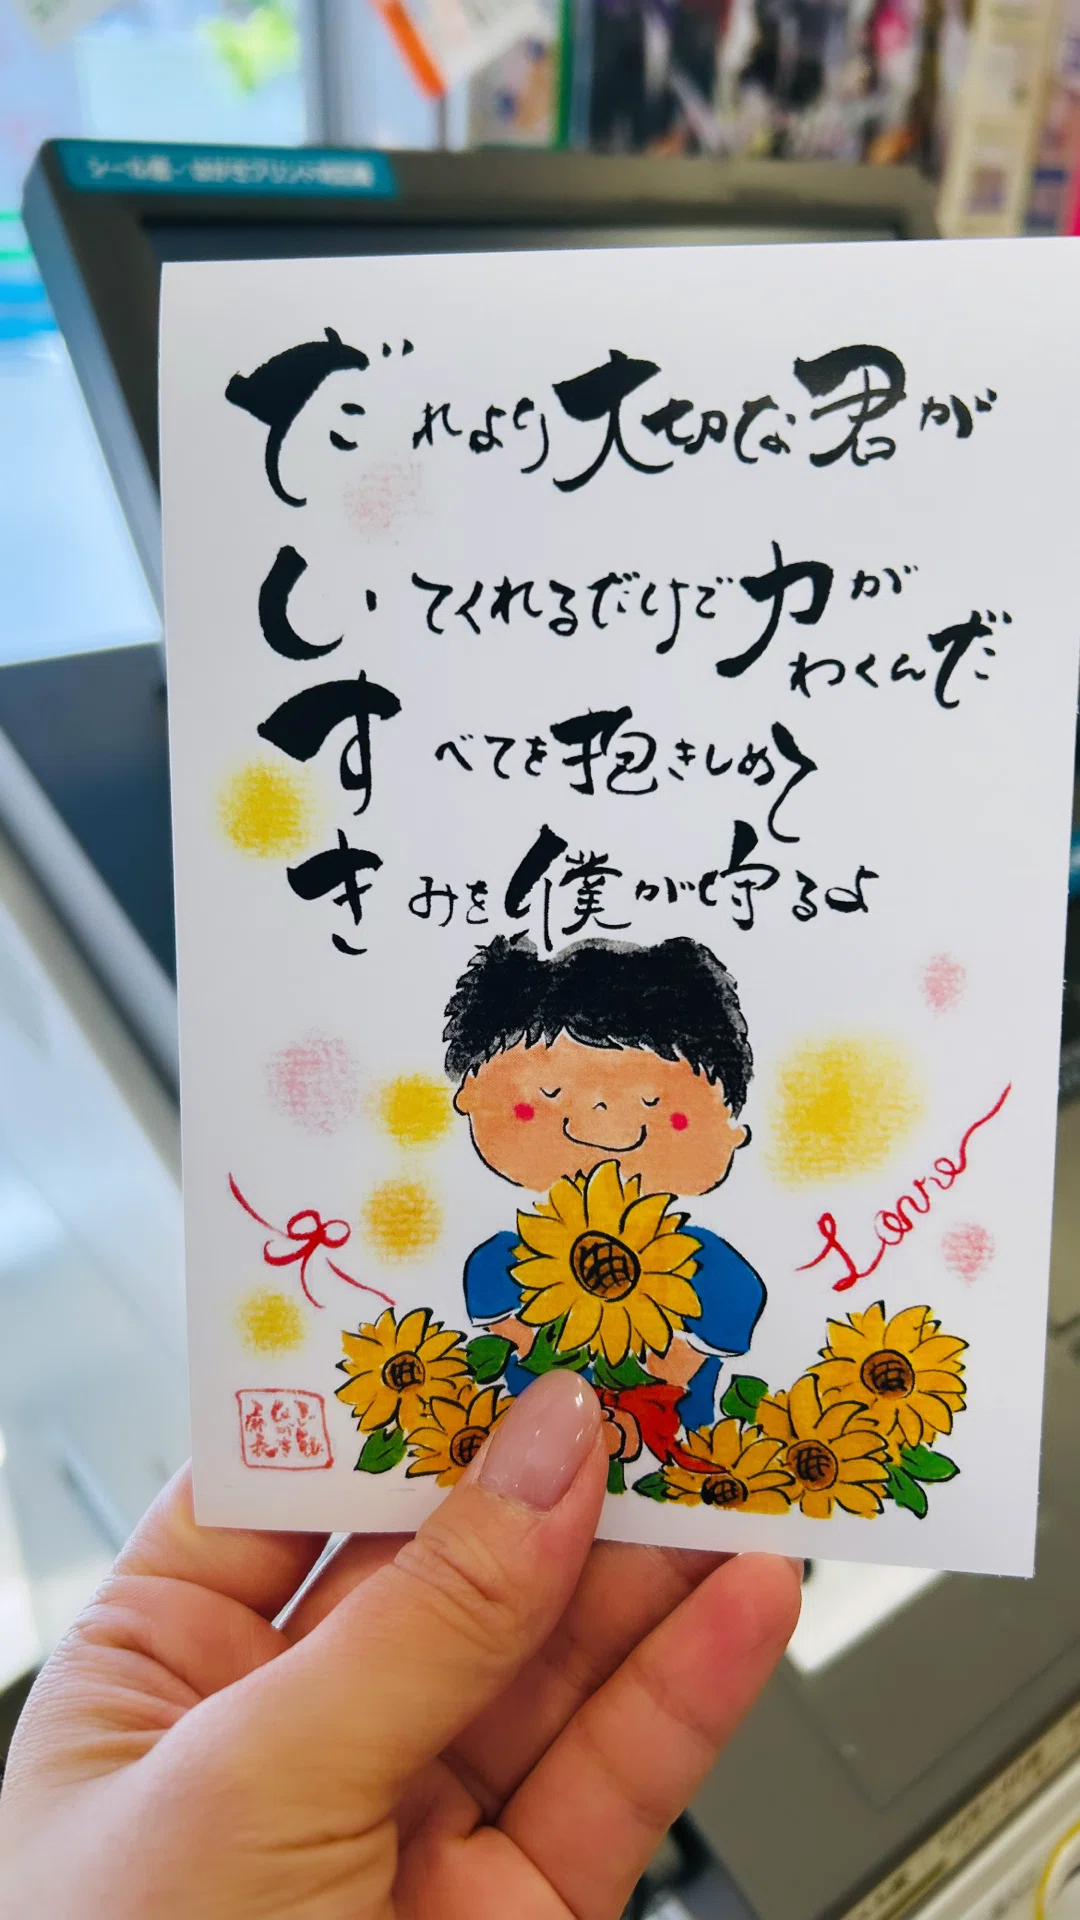 シール紙・はがきプリント対応機
だれより大切な君が
いてくれるだけで力が
わくんだ
すべてを抱きしめて
きみを僕が守るよ
Love